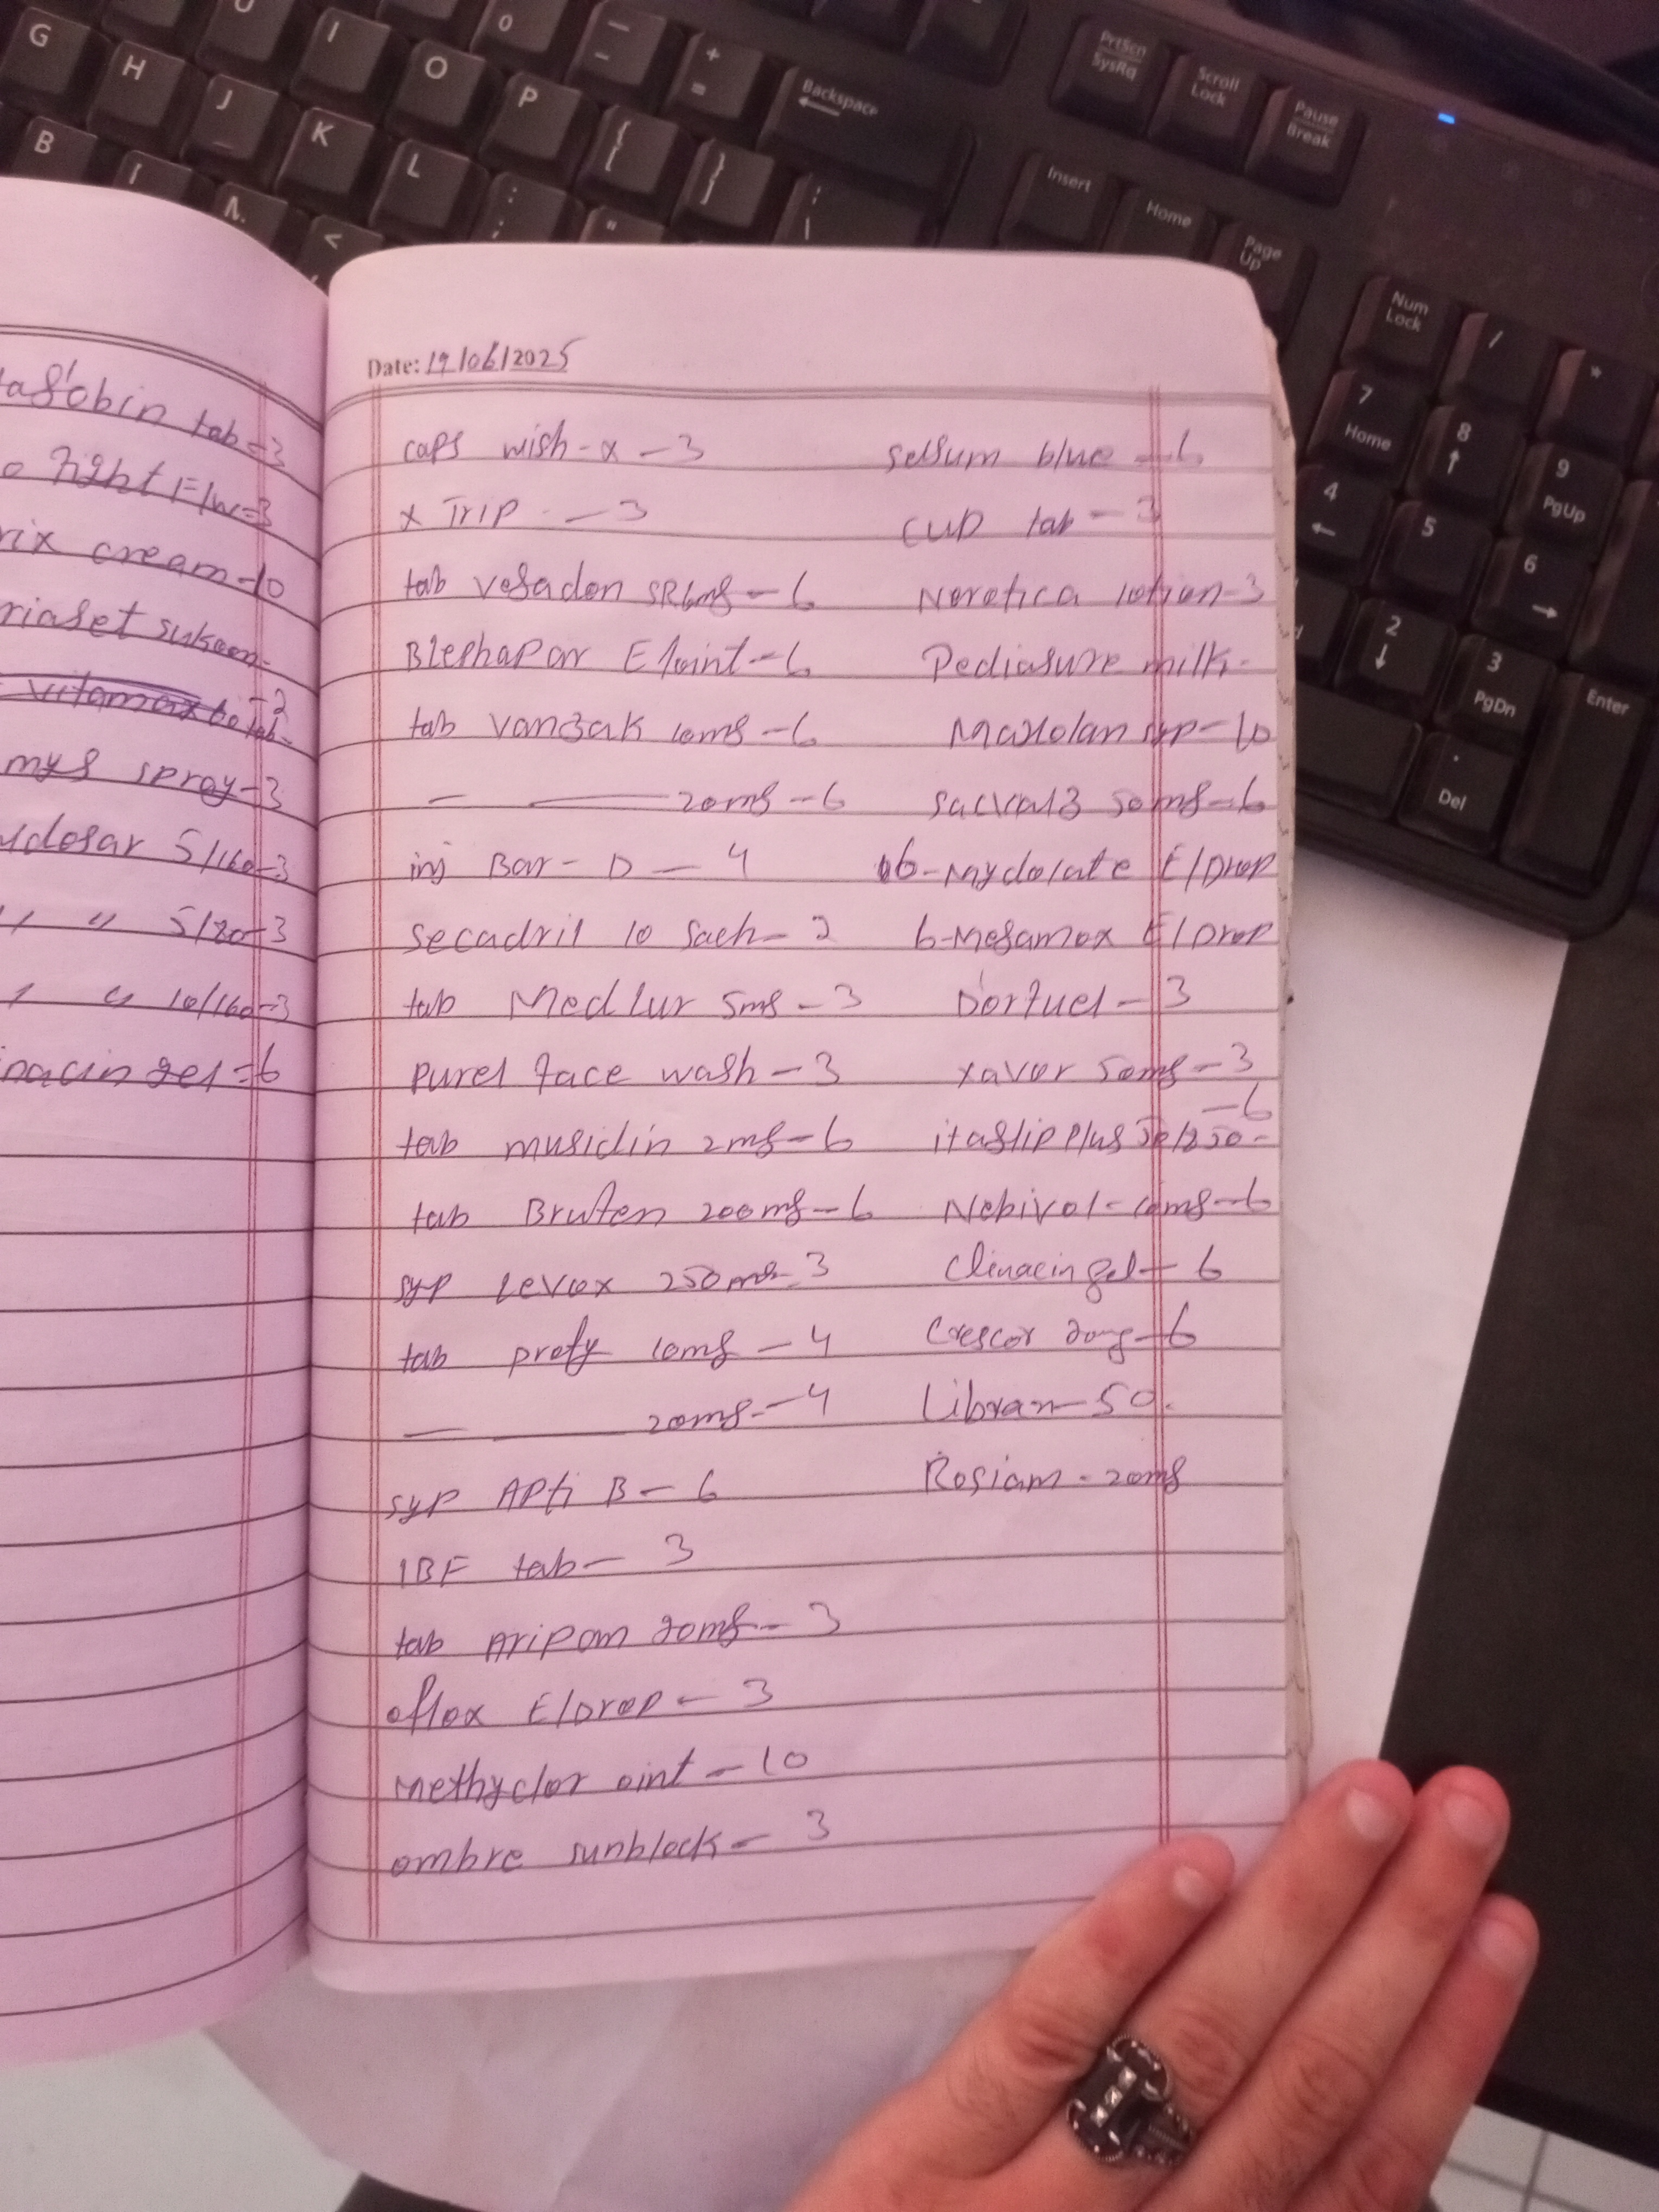 tab=3
Fight F/W=3
cream=10
vitamax
spray-3
5/160-3
" " 5/80-3
" " 10/160-3
gel=6
Date: 19/06/2025
caps wish-x -3
x Trip - 3
tab vegadon SR 6mg - 6
Blephapar E/oint - 6
tab vanzak 10mg - 6
— —— 20mg - 6
inj Bar-D - 4
secadril 10 sach - 2
tab Medlur 5mg - 3
purel face wash - 3
tab musidin 2mg - 6
tab Brufen 200mg - 6
syp Levox 250mg - 3
tab prefy 10mg - 4
— —— 20mg - 4
syp APti B - 6
IBF tab - 3
tab Aripam 20mg - 3
oflox E/Drop - 3
Methyclor oint - 10
ombre sunblock - 3
selsum blue - 6
cup tab - 3
Neretica lotion - 3
Pediasure milk -
Maxolan syp - 10
sacval3 50mg - 6
6-Mydolate E/Drop
6-Megamox E/Drop
Dorfuel - 3
xavor 50mg - 3
- 6
itaglip plus
Nebivol - 10mg - 6
Clinacin gel - 6
Crescor 20mg - 6
Libran - 50.
Rosiam - 20mg
G
H
I
O
P
J
K
L
B
Backspace
PrtScn
SysRq
Scroll
Lock
Pause
Break
Insert
Home
Page
Up
Num
Lock
/
*
7
Home
8
9
PgUp
4
5
6
2
3
PgDn
Enter
.
Del